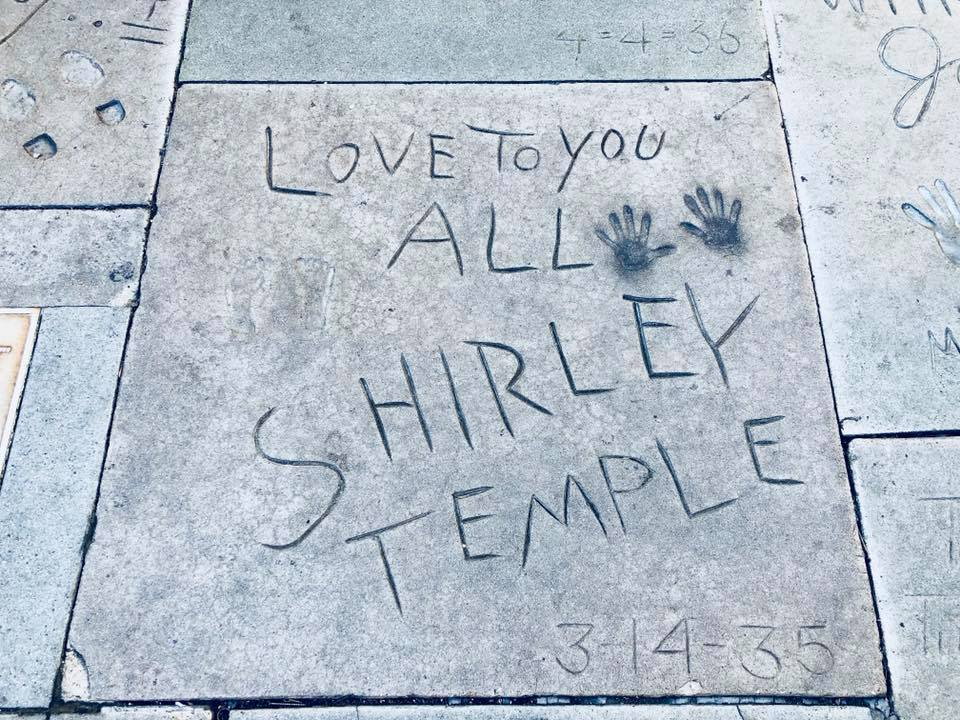 4=4=36
LOVE TO YOU
ALL
SHIRLEY
TEMPLE
3-14-35